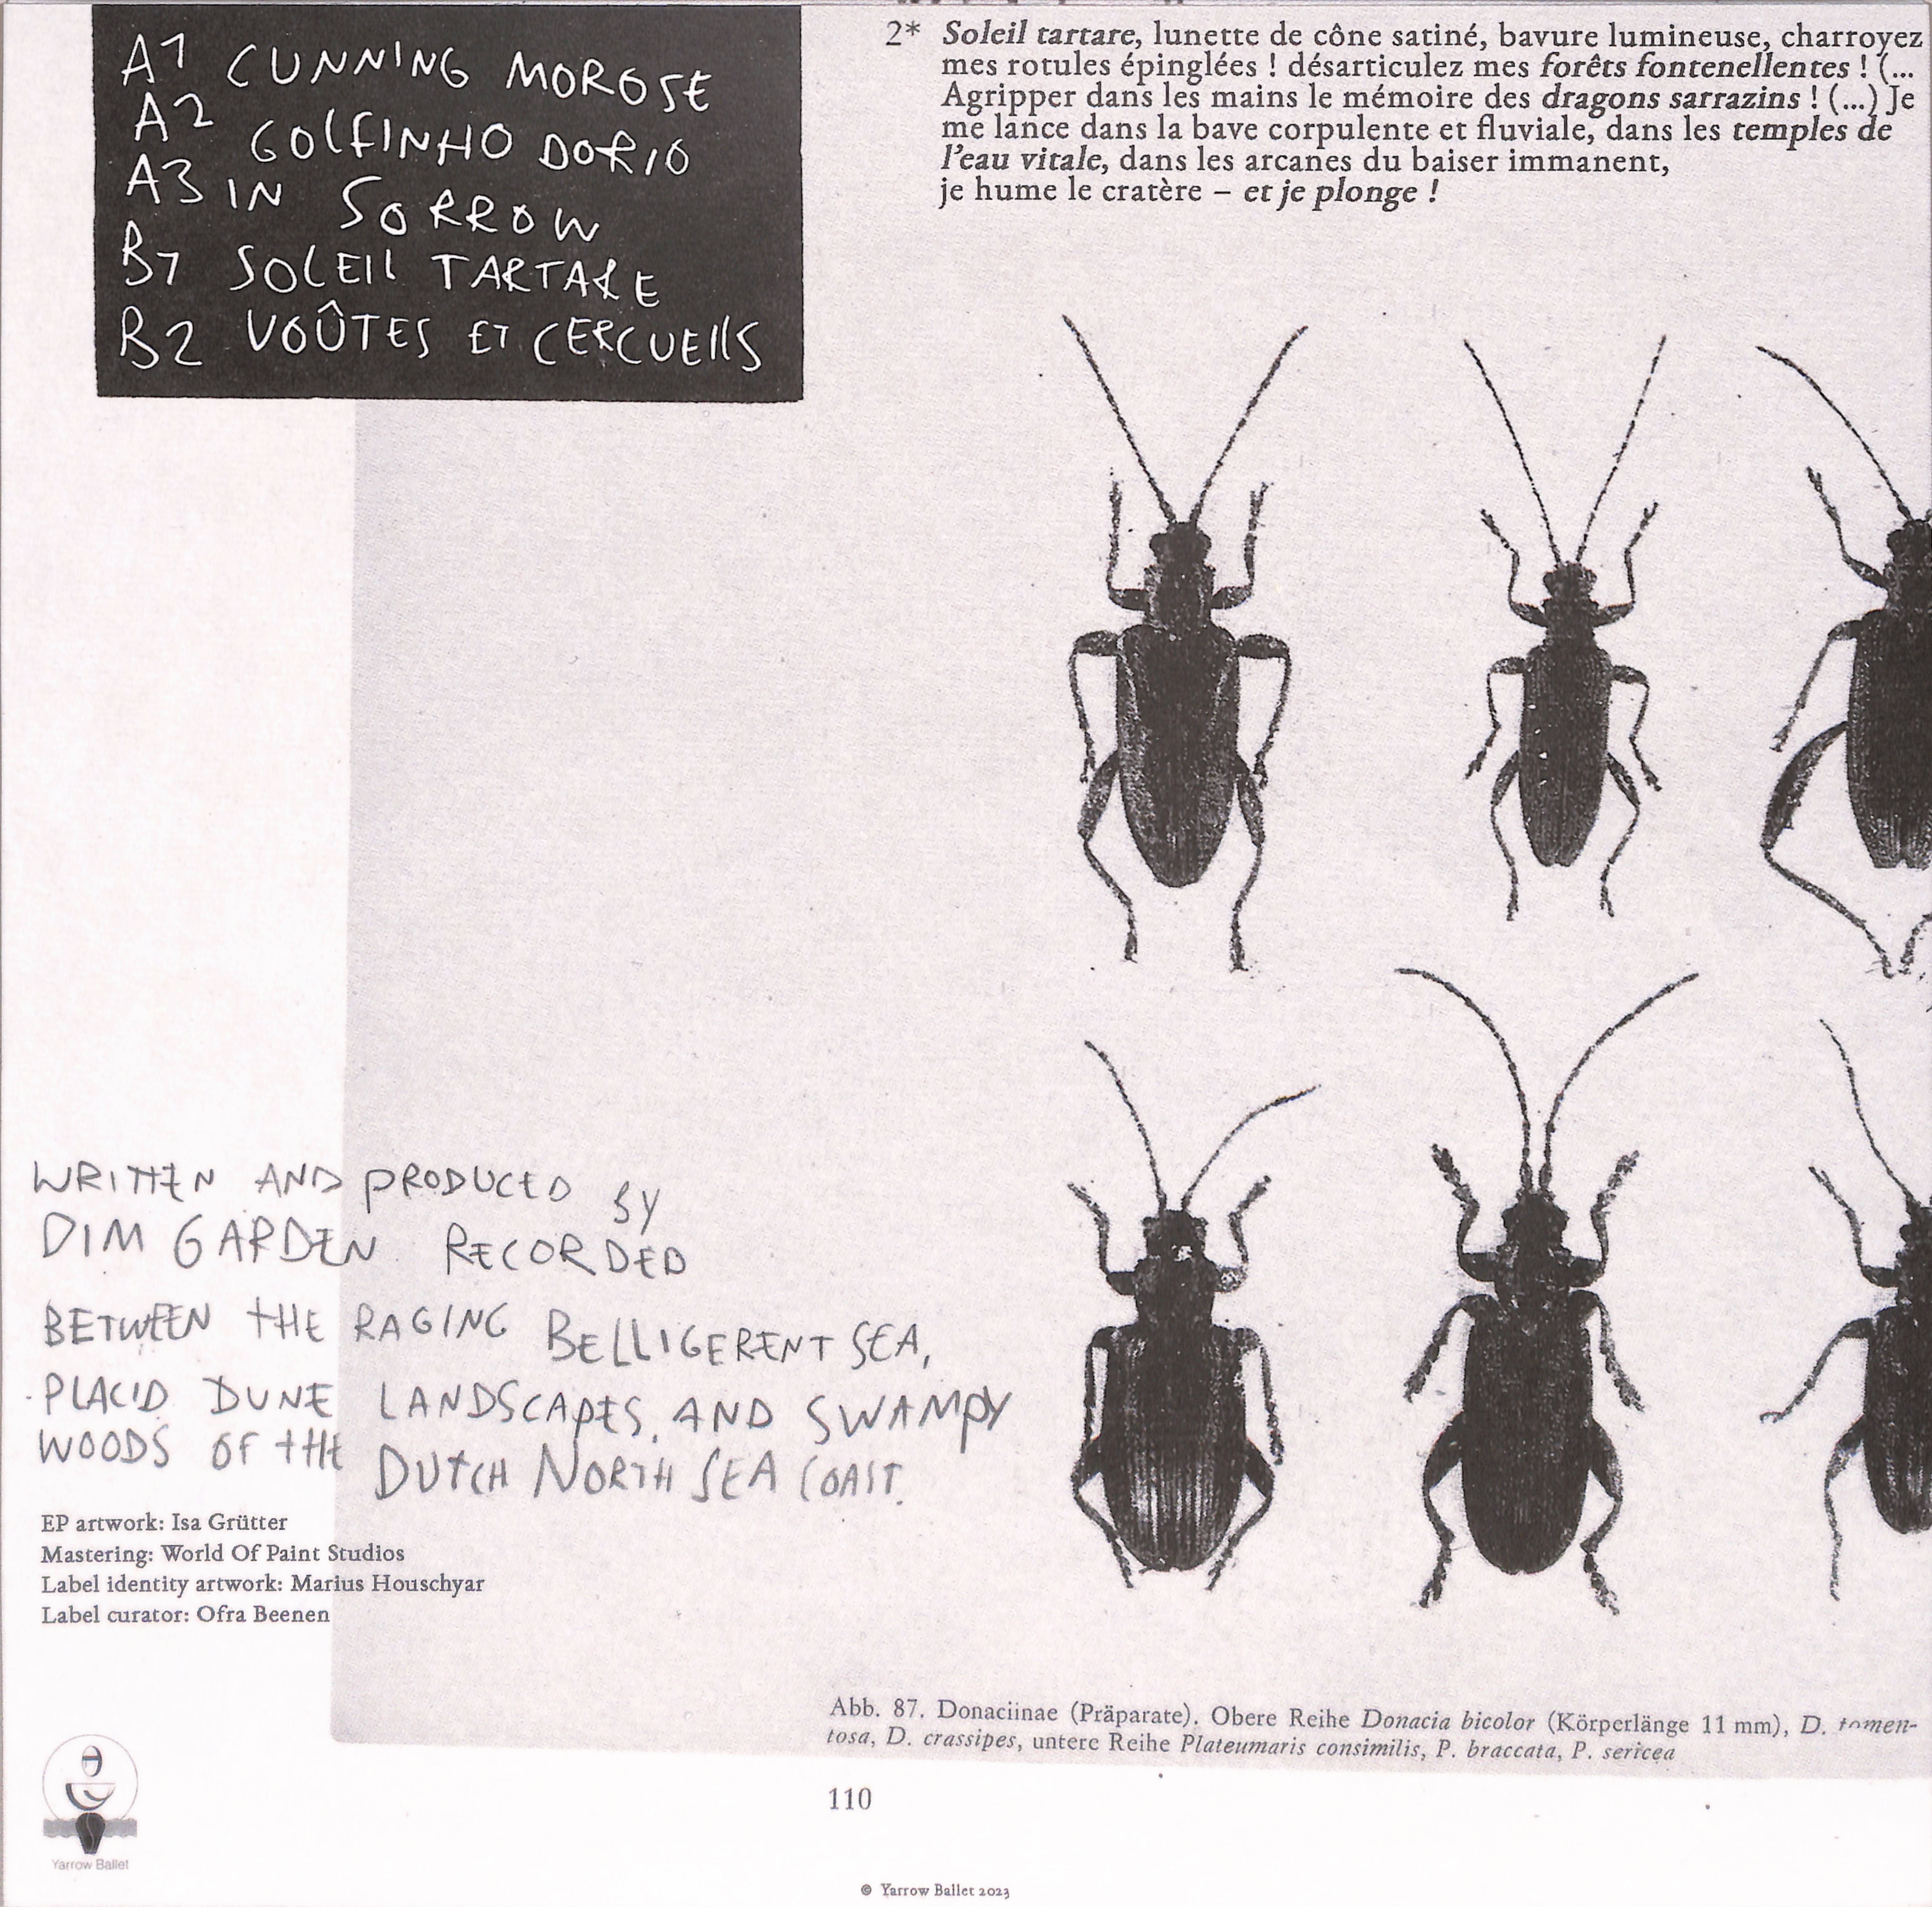 A1 CUNNING MOROSE
A2 GOLFINHO DORIO
A3 IN SORROW
B1 SOLEIL TARTARE
B2 VOÛTES ET CERCUEILS
2* Soleil tartare, lunette de cône satiné, bavure lumineuse, charroyez
mes rotules épinglées ! désarticulez mes forêts fontenellentes ! (...
Agripper dans les mains le mémoire des dragons sarrazins ! (...) Je
me lance dans la bave corpulente et fluviale, dans les temples de
l'eau vitale, dans les arcanes du baiser immanent,
je hume le cratère – et je plonge !
WRITTEN AND PRODUCED BY
DIM GARDEN. RECORDED
BETWEEN THE RAGING BELLIGERENT SEA,
PLACID DUNE LANDSCAPES, AND SWAMPY
WOODS OF THE DUTCH NORTH SEA COAST.
EP artwork: Isa Grütter
Mastering: World Of Paint Studios
Label identity artwork: Marius Houschyar
Label curator: Ofra Beenen
Abb. 87. Donaciinae (Präparate). Obere Reihe Donacia bicolor (Körperlänge 11 mm), D. tomen-
tosa, D. crassipes, untere Reihe Plateumaris consimilis, P. braccata, P. sericea
110
Yarrow Ballet
© Yarrow Ballet 2023